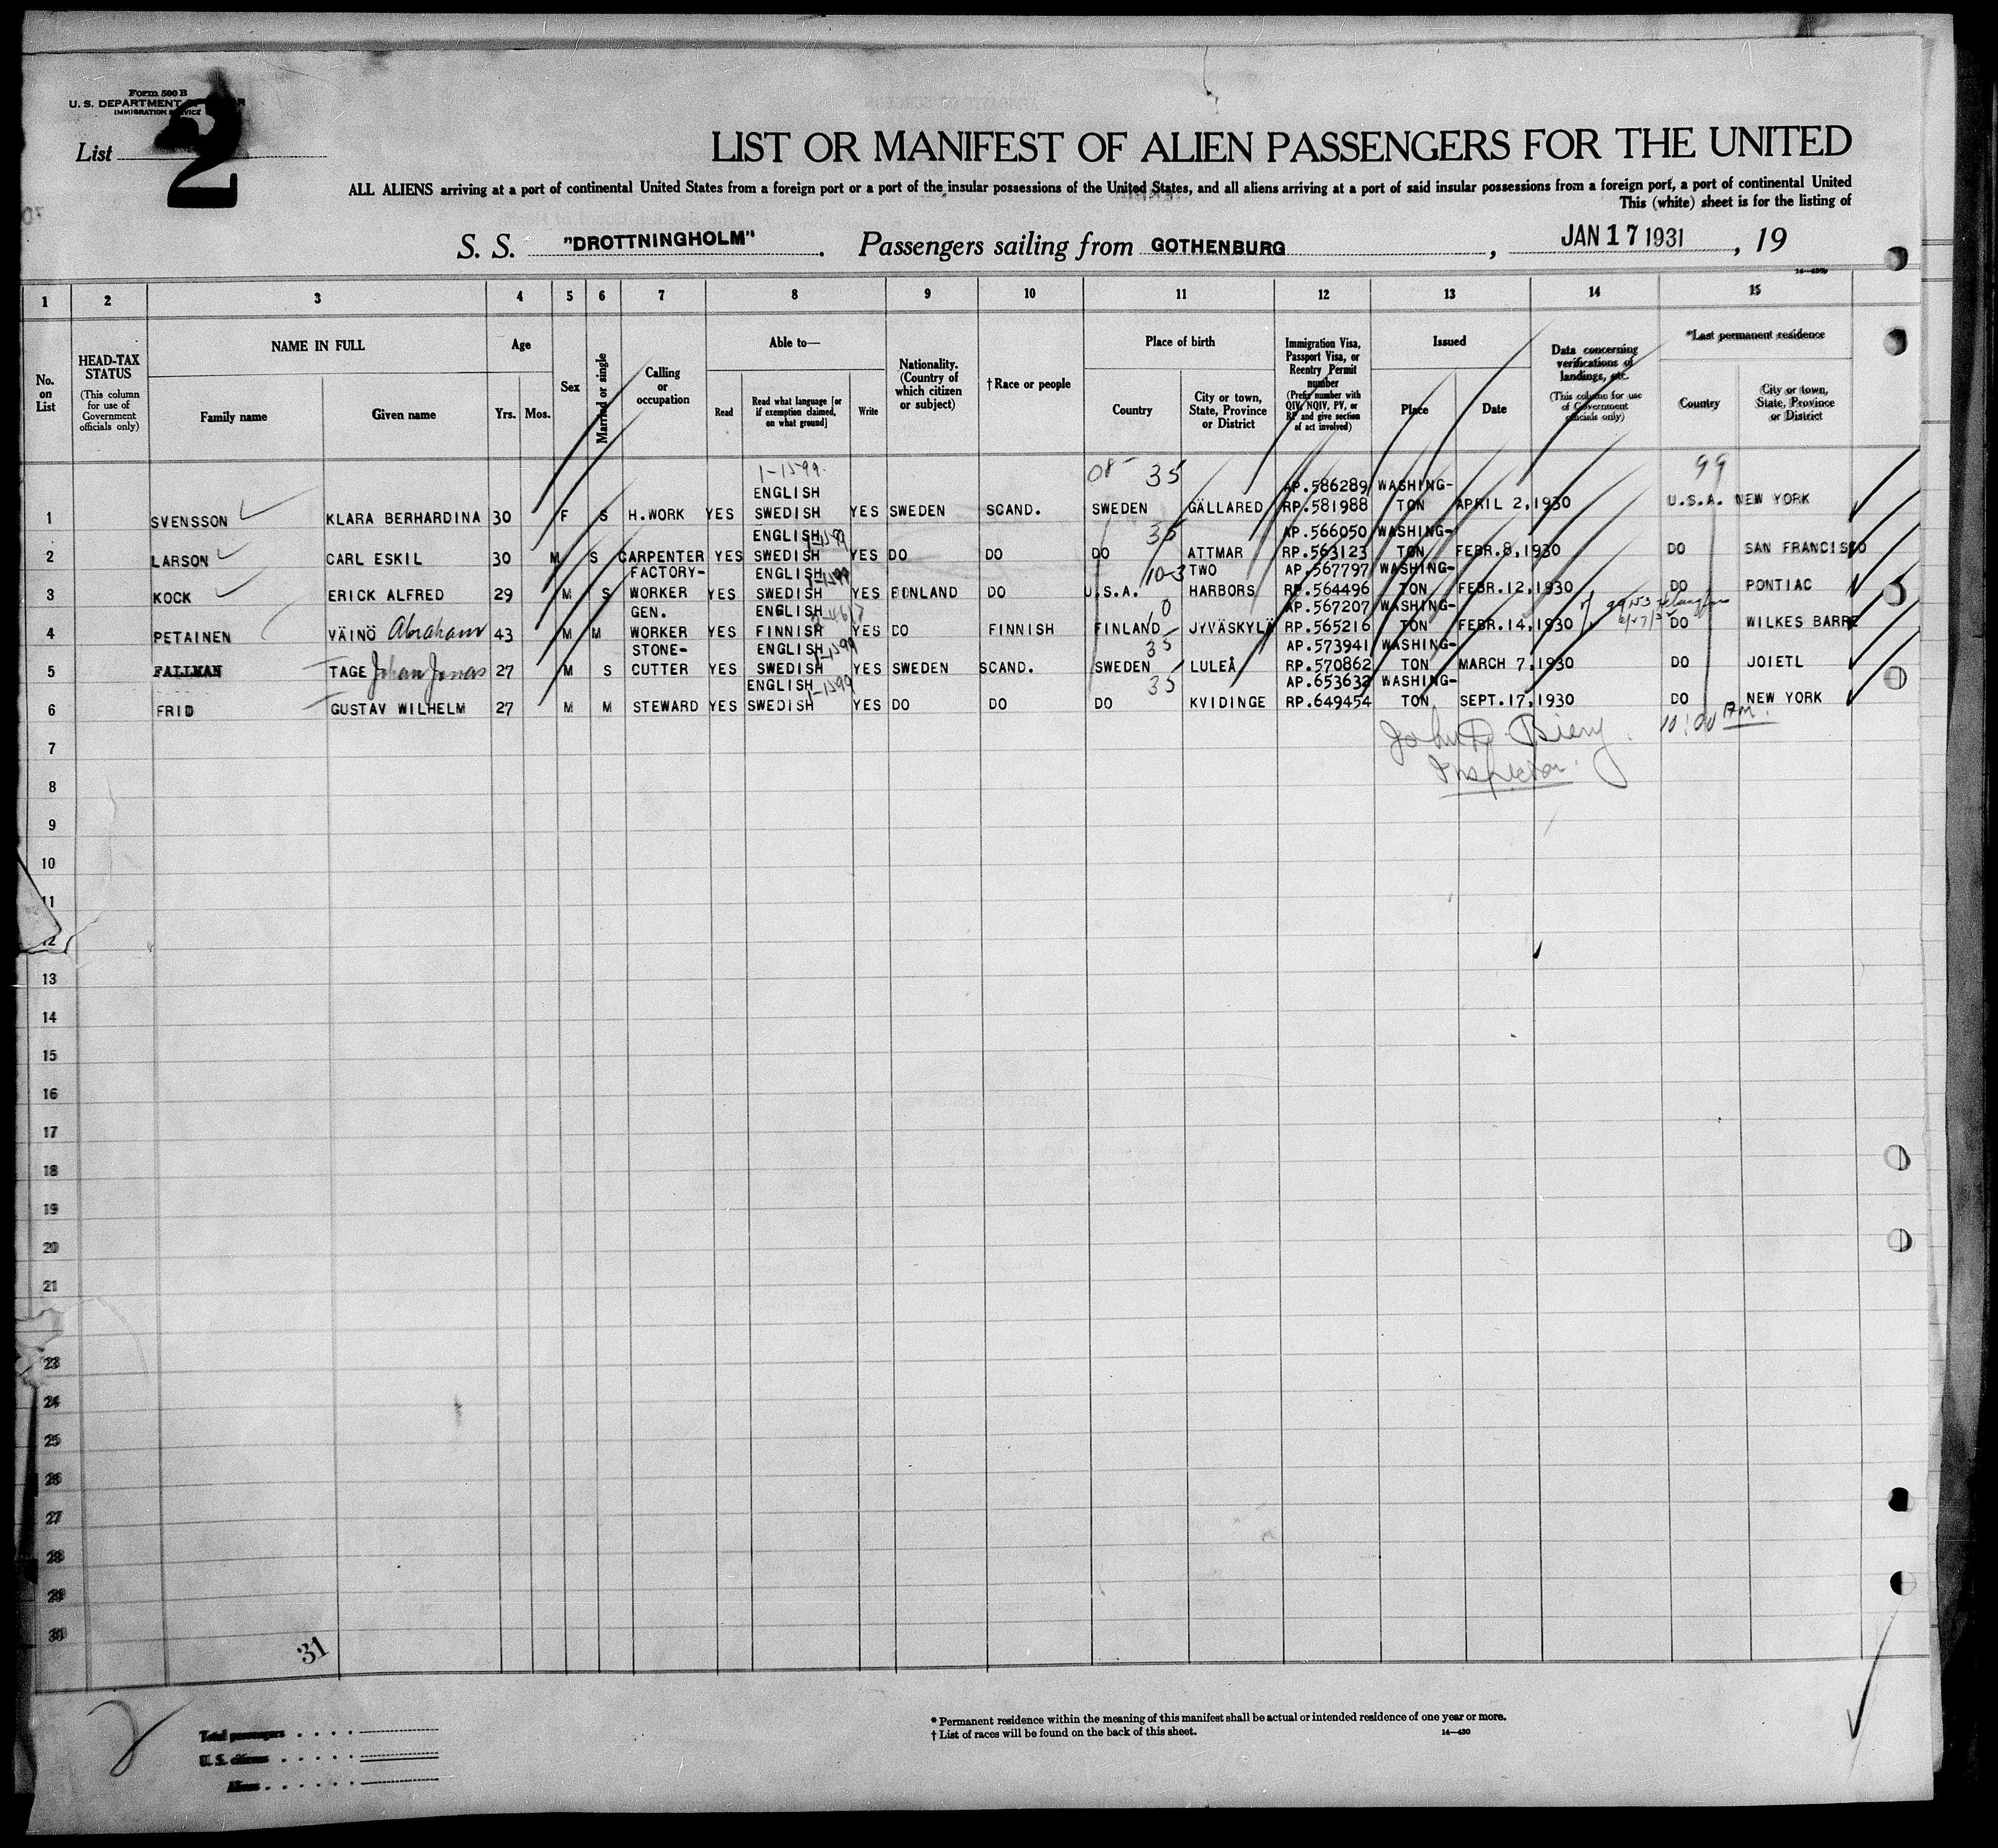 Form 500 B
U. S. DEPARTMENT
IMMIGRATION SERVICE
List
2
LIST OR MANIFEST OF ALIEN PASSENGERS FOR THE UNITED
ALL ALIENS arriving at a port of continental United States from a foreign port or a port of the insular possessions of the United States, and all aliens arriving at a port of said insular possessions from a foreign port, a port of continental United
This (white) sheet is for the listing of
S. S. "DROTTNINGHOLM" . Passengers sailing from GOTHENBURG , JAN 17 1931 , 19
1 2 3 4 5 6 7 8 9 10 11 12 13 14 15
No. on List
HEAD-TAX STATUS (This column for use of Government officials only)
NAME IN FULL
Family name
Given name
Age
Yrs. Mos.
Sex
Married or single
Calling or occupation
Able to—
Read
Read what language [or if exemption claimed, on what ground]
Write
Nationality. (Country of which citizen or subject)
† Race or people
Place of birth
Country
City or town, State, Province or District
Immigration Visa, Passport Visa, or Reentry Permit number (Prefix number with QIV, NQIV, PV, or RP and give section of act involved)
Issued
Place
Date
Data concerning verifications of landings, etc. (This column for use of Government officials only)
*Last permanent residence
Country
City or town, State, Province or District
1-1599 08- 35 99
ENGLISH AP.586289 WASHING-
1 SVENSSON KLARA BERHARDINA 30 F S H.WORK YES SWEDISH YES SWEDEN SCAND. SWEDEN GÄLLARED RP.581988 TON APRIL 2,1930 U.S.A. NEW YORK
ENGLISH 1-1599 35 AP.566050 WASHING-
2 LARSON CARL ESKIL 30 M S CARPENTER YES SWEDISH YES DO DO DO ATTMAR RP.563123 TON FEBR.8,1930 DO SAN FRANCISCO
FACTORY- ENGLISH 1-1599 10-3 TWO AP.567797 WASHING-
3 KOCK ERICK ALFRED 29 M S WORKER YES SWEDISH YES FINLAND DO U.S.A. HARBORS RP.564496 TON FEBR.12,1930 DO PONTIAC
GEN. ENGLISH 0 AP.567207 WASHING-
4 PETAINEN VÄINÖ Abraham 43 M M WORKER YES FINNISH YES DO FINNISH FINLAND JYVÄSKYLÄ RP.565216 TON FEBR.14,1930 DO WILKES BARRE
STONE- ENGLISH 1-1599 35 AP.573941 WASHING-
5 FALLMAN TAGE Johan Jonas 27 M S CUTTER YES SWEDISH YES SWEDEN SCAND. SWEDEN LULEÅ RP.570862 TON MARCH 7,1930 DO JOIETL
ENGLISH 1-1599 35 AP.653632 WASHING-
6 FRID GUSTAV WILHELM 27 M M STEWARD YES SWEDISH YES DO DO DO KVIDINGE RP.649454 TON SEPT.17,1930 DO NEW YORK
7 John D. Bieny. 10:00 AM.
Inspector.
8
9
10
11
12
13
14
15
16
17
18
19
20
21
23
24
25
26
27
28
29
30
31
Total passengers
U. S. citizens
Aliens
* Permanent residence within the meaning of this manifest shall be actual or intended residence of one year or more.
† List of races will be found on the back of this sheet. 14—430